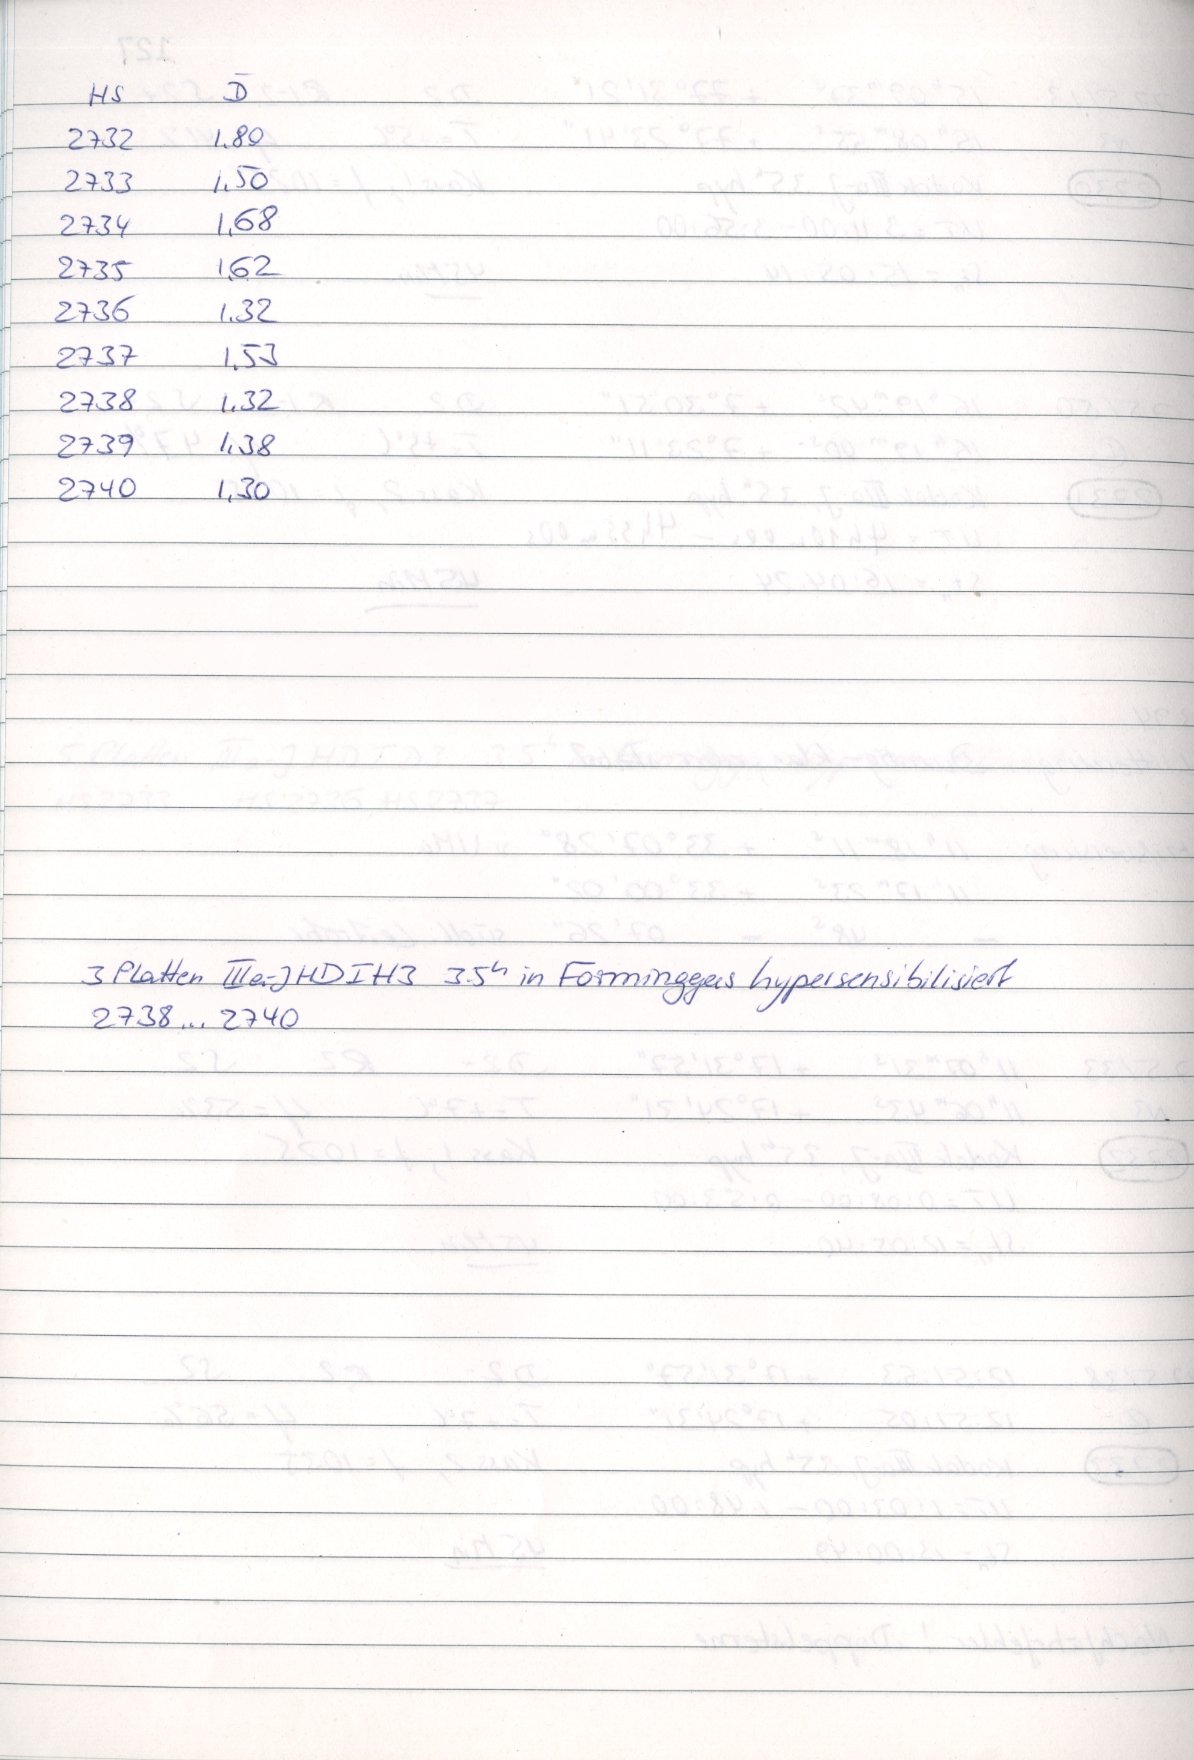 HS D̅
2732 1.80
2733 1,50
2734 1,68
2735 1,62
2736 1.32
2737 1,53
2738 1.32
2739 1.38
2740 1,30
3 Platten IIIa-J HDIH3 3.5ʰ in Forminggas hypersensibilisiert
2738... 2740